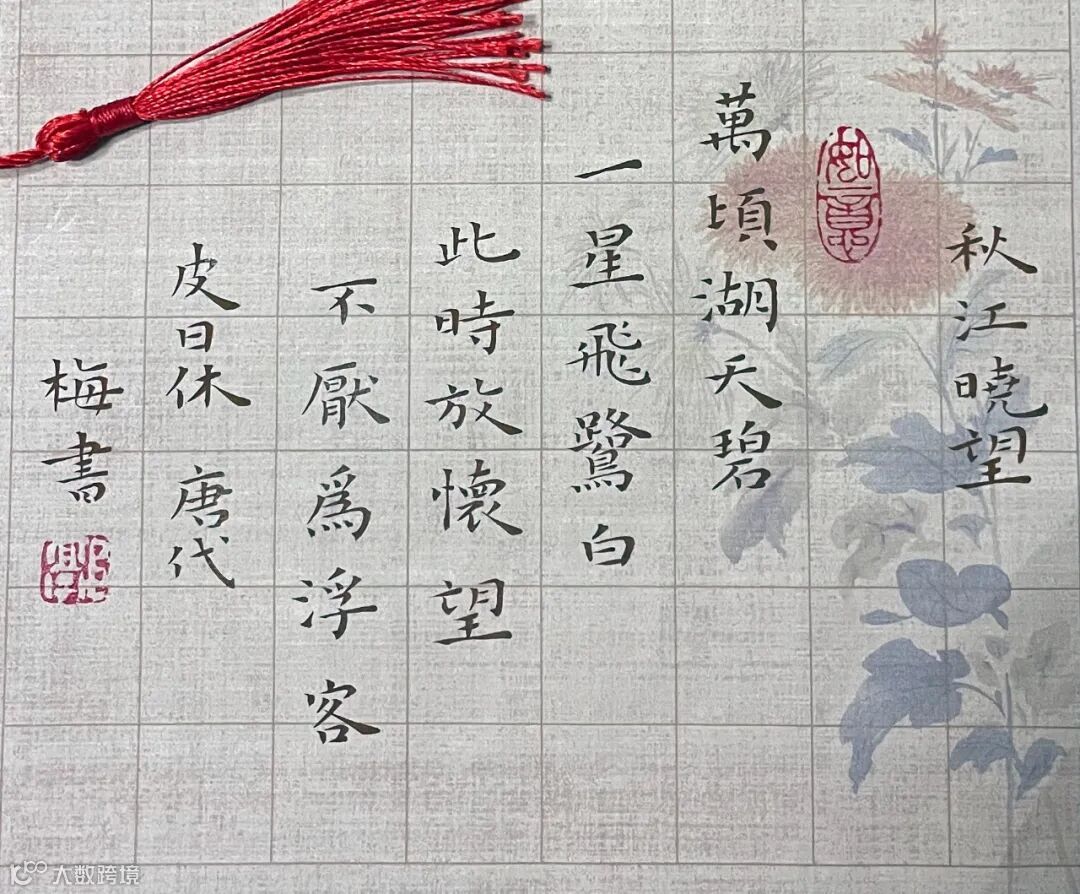 秋江曉望
如意
萬頃湖天碧
一星飛鷺白
此時放懷望
不厭爲浮客
皮日休 唐代
梅書
大数跨境